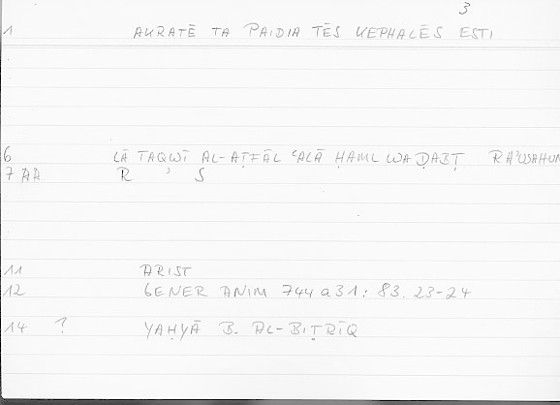 3
1 AKRATĒ TA PAIDIA TĒS KEPHALĒS ESTI
6 LĀ TAQWĪ AL-AṬFĀL ʿALĀ ḤAML WA ḌABṬ RAʾUSAHUM
7 AR R ʾ S
11 ARIST
12 GENER ANIM 744a31: 83.23-24
14 ? YAḤYĀ B. AL-BIṬRĪQ